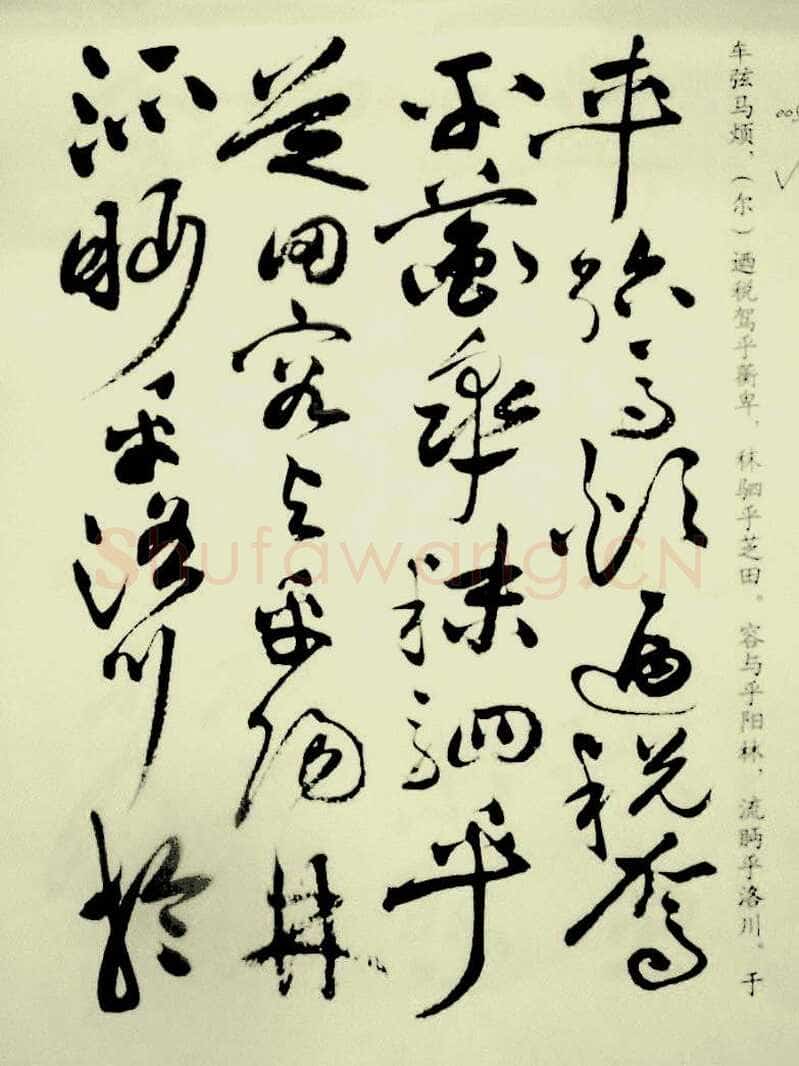 车弦马烦，（尔）迺税驾乎蘅卑，秣驷乎芝田。容与乎阳林，流眄乎洛川。于
車殆馬煩迺税駕
乎蘅皋秣駟乎
芝田容与乎陽林
流眄乎洛川於
Shufawang.CN